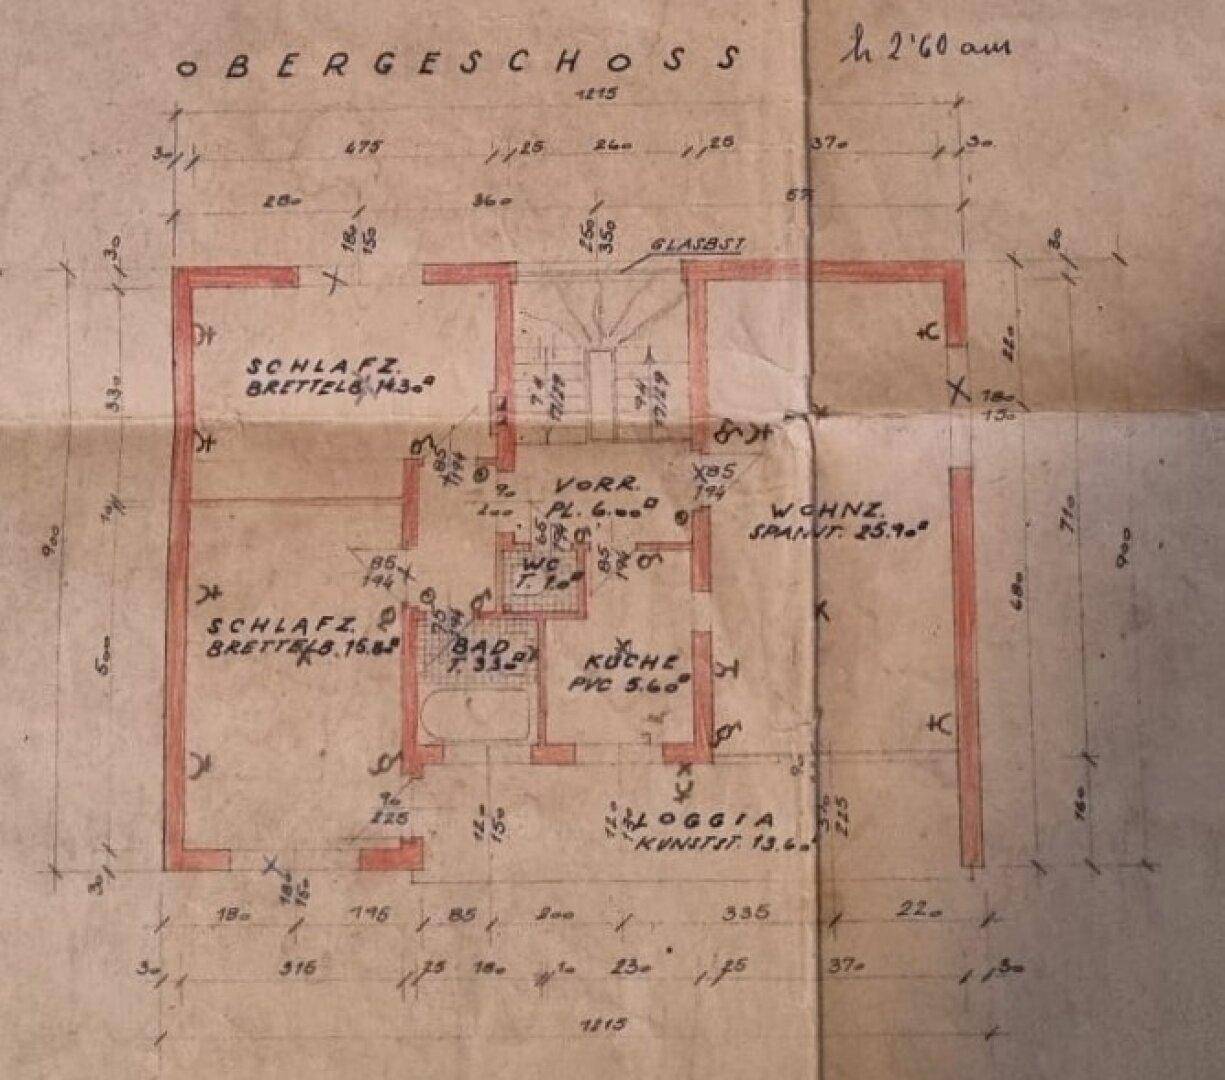 OBERGESCHOSS
h 2'60 am
1215
30 475 25 260 25 370 30
280 360 57
180
150
250
350
GLASBST
30
30
SCHLAFZ.
BRETTELB. 14.30□
330
74
17/29
74
17/29
220
180
150
85
194
90
200
VORR.
PL. 6.00□
85
194
WOHNZ.
SPANNT. 25.90□
10
900
710
900
680
65
194
85
194
WC
T. 1.0□
85
194
SCHLAFZ.
BRETTELB. 15.80□
75
194
BAD
T. 3.30□
KÜCHE
PVC 5.60□
500
90
225
120
150
120
LOGGIA
KUNSTST. 13.60□
225
160
30
180
150
180 195 85 200 335 220
30 315 25 180 10 230 25 370 30
1215